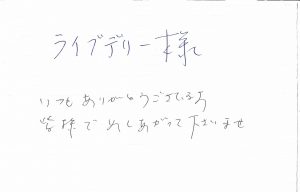 ライブデリー様
いつもありがとうございます
皆様でめしあがって下さいませ